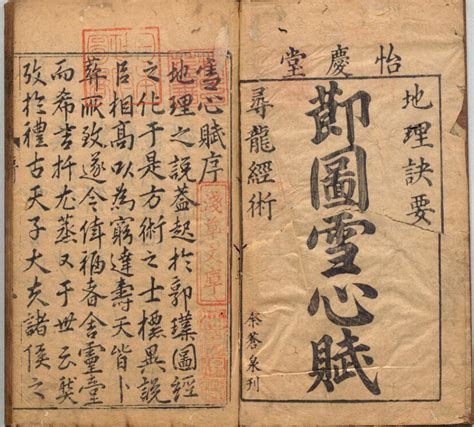 怡慶堂
地理訣要
莭圖雪心賦
尋龍經術
余蒼泉刊
雪心賦序
地理之說蓋起於郭璞圖經
之化于是方術之士標異說
相高以為窮達壽夭皆卜
葬所致遂令偉福舍靈臺
而希吉尤又于世云
攷於禮古天子大夫諸侯之
淺草文庫